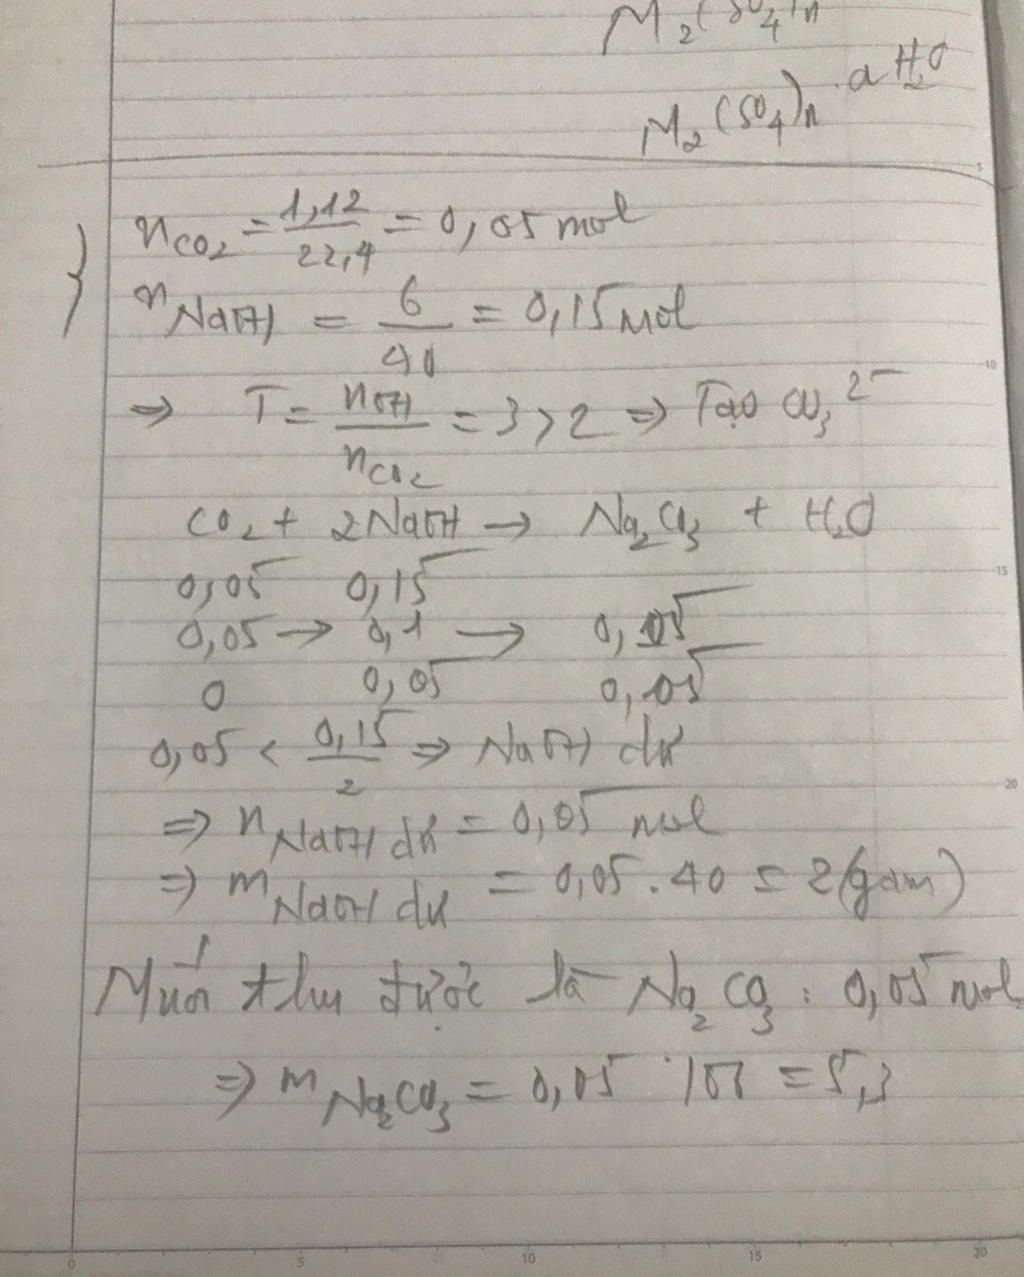 M₂(SO₄)n
M₂(SO₄)n . aH₂O
nCO₂ = 1,12/22,4 = 0,05 mol
nNaOH = 6/40 = 0,15 mol
⇒ T = nOH/nCO₂ = 3 > 2 ⇒ Tạo CO₃²⁻
CO₂ + 2NaOH → Na₂CO₃ + H₂O
0,05 0,15
0,05 → 0,1 → 0,05
0 0,05 0,05
0,05 < 0,15/2 ⇒ NaOH dư
⇒ nNaOH dư = 0,05 mol
⇒ mNaOH dư = 0,05 . 40 = 2 (gam)
Muối thu được là Na₂CO₃ : 0,05 mol
⇒ mNa₂CO₃ = 0,05 . = 5,3
5
10
15
20
0 5 10 15 20